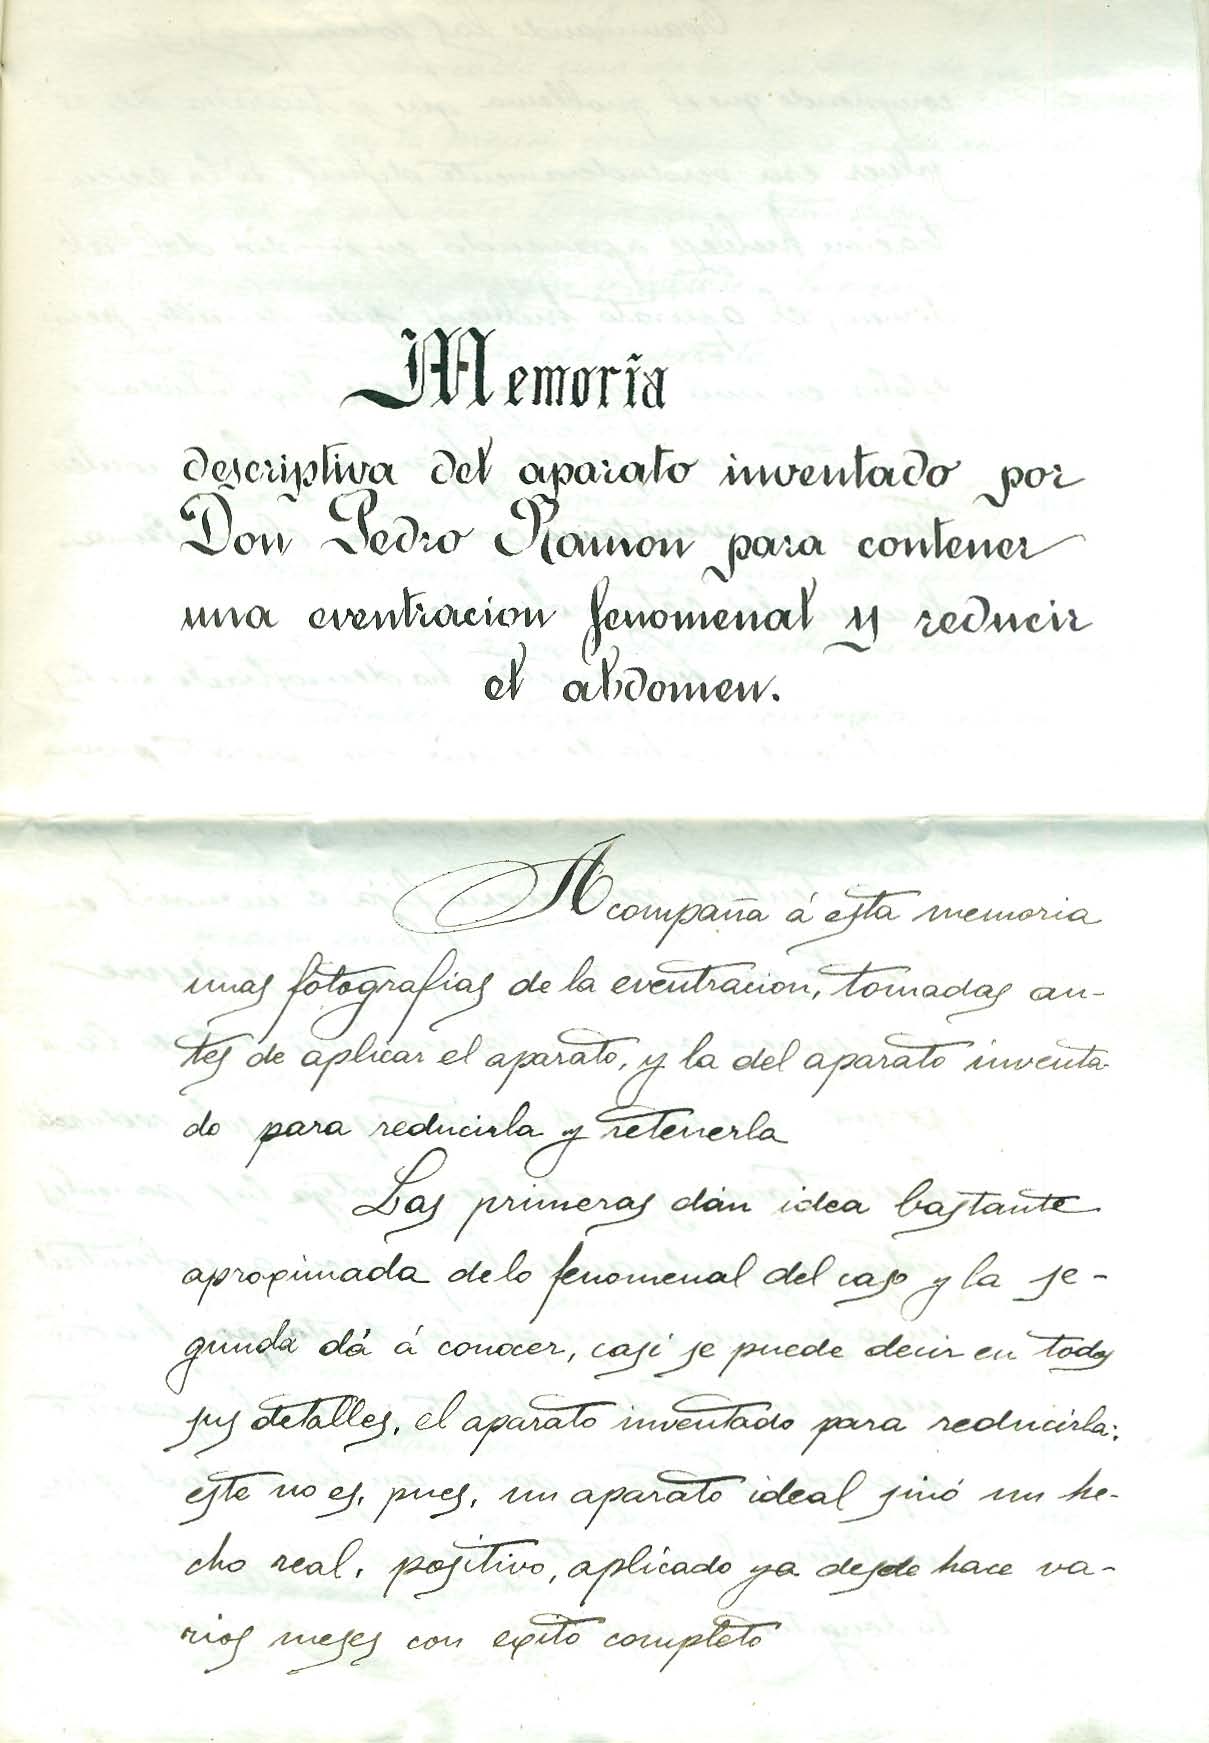 Memoria
descriptiva del aparato inventado por
Don Pedro Ramon para contener
una eventracion fenomenal y reducir
el abdomen.
Acompaña á esta memoria
unas fotografias de la eventracion, tomadas an-
tes de aplicar el aparato, y la del aparato inventa-
do para reducirla y retenerla
Las primeras dán idea bastante
aproximada de lo fenomenal del caso y la se-
gunda dá á conocer, casi se puede decir en todos
sus detalles, el aparato inventado para reducirla:
este no es, pues, un aparato ideal sinó un he-
cho real, positivo, aplicado ya desde hace va-
rios meses con exito completo